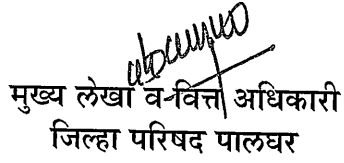 मुख्य लेखा व वित्त अधिकारी
जिल्हा परिषद पालघर